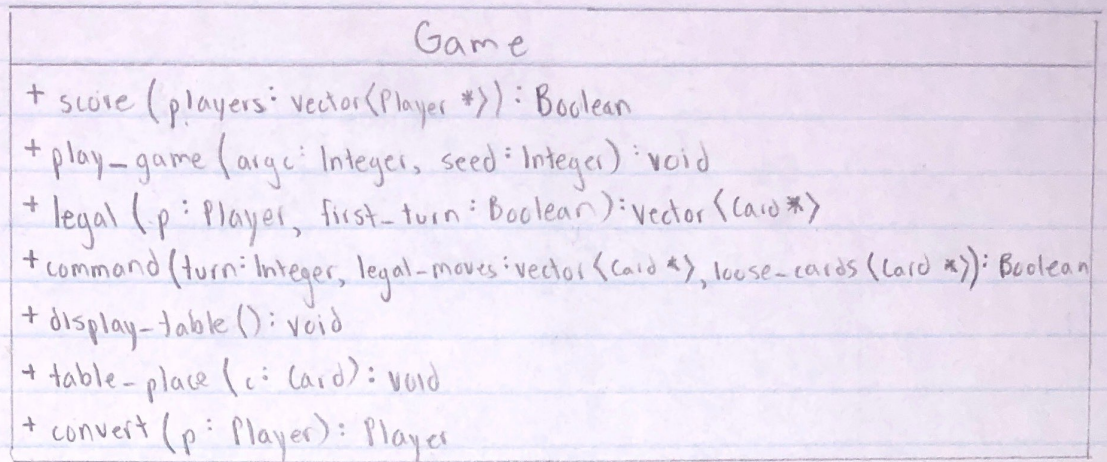 Game
+ score (players: vector<Player *>): Boolean
+ play_game (argc: Integer, seed: Integer): void
+ legal (p: Player, first_turn: Boolean): vector<Card *>
+ command (turn: Integer, legal_moves: vector<Card *>, loose_cards <Card *>): Boolean
+ display_table (): void
+ table_place (c: Card): void
+ convert (p: Player): Player